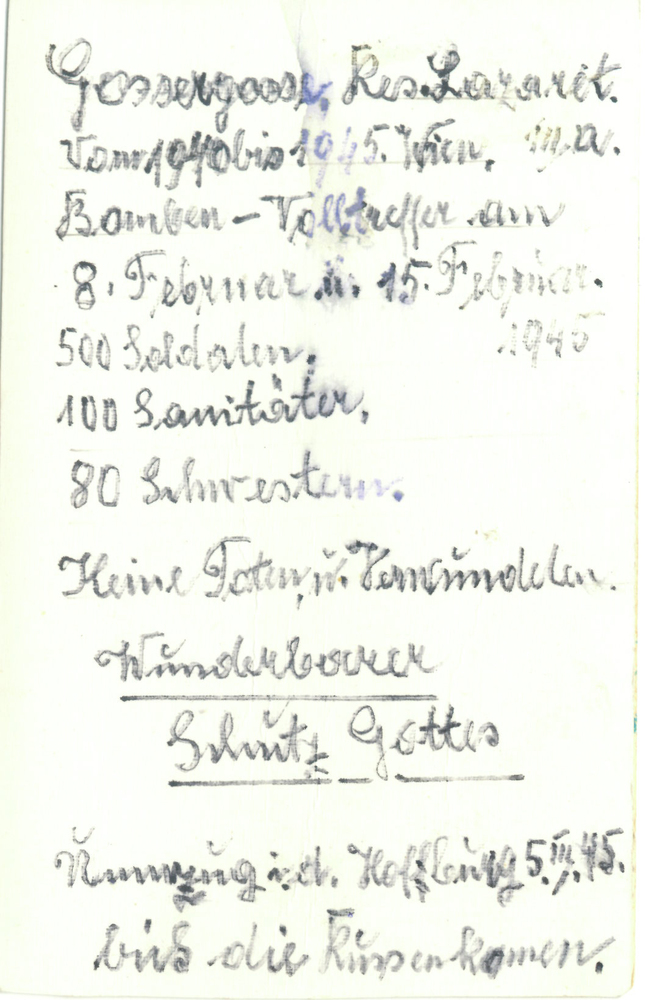 Gossergasse, Res. Lazarett.
Vom 1940 bis 1945. Wien,
Bomben – Volltreffer am
8. Februar u. 15. Februar.
1945
500 Soldaten,
100 Sanitäter,
80 Schwestern.
Keine Toten, u. Verwundeten.
Wunderbarer
Schutz Gottes
Umzug i. d. Hoffburg 5. III. 45.
bis die Russen komen.